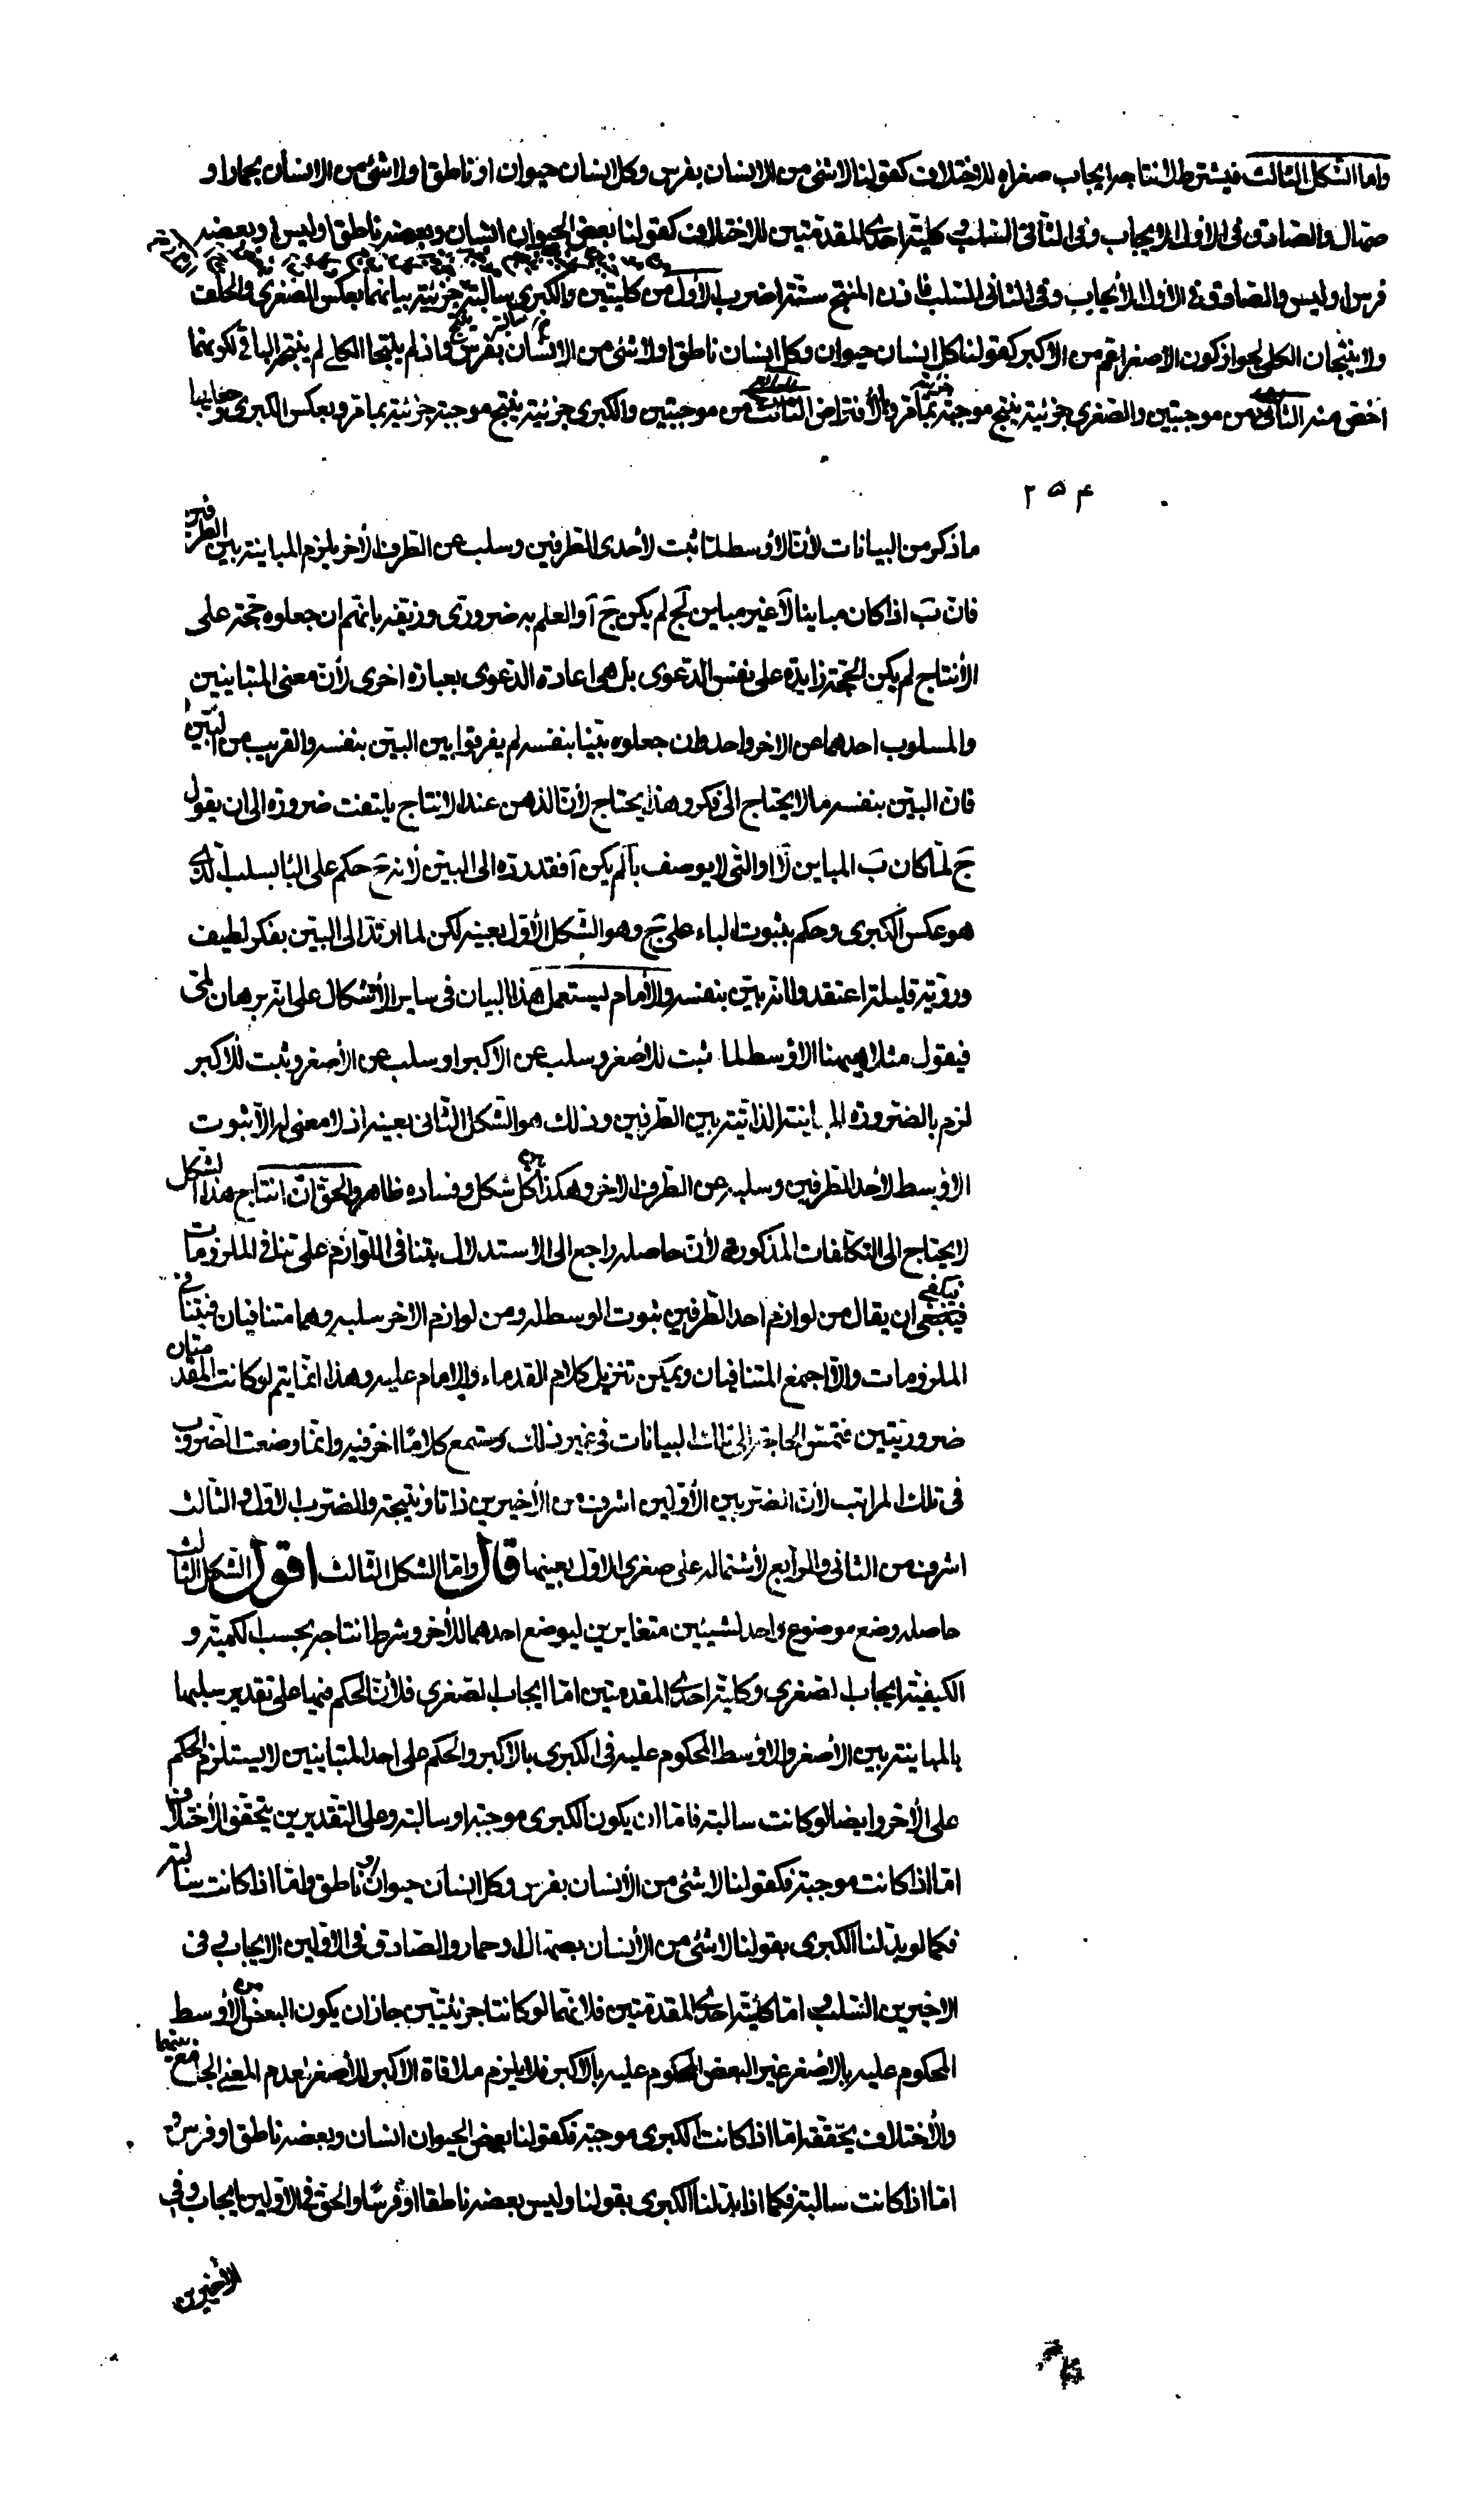 واما الشكل الثالث فيشترط لانتاجه ايجاب صغراه للاختلاف كقولنا لاشئ من الانسان بفرس وكل انسان حيوان او ناطق او لاشئ من الانسان بحمار او
صهال والصادق فى الاول الايجاب وفى الثانى السلب و كلية احدى المقدمتين للاختلاف كقولنا بعض الحيوان انسان وبعضه ناطق او ليس او بعضه
فرس او ليس والصادق فى الاول الايجاب وفى الثانى السلب فاذن المنتج ستة اضرب الاول من كليتين والكبرى سالبة جزئية بيانهما بعكس الصغرى والخلف
ولا ينتجان الكلى لجواز كون الاصغر اعم من الاكبر كقولنا كل انسان حيوان وكل انسان ناطق او لاشئ من الانسان بفرس واذ لم ينتجا الكلى لم ينتجه الباقى لكونهما
اخص منه الثانى من موجبتين والصغرى جزئية ينتج موجبة جزئية بما مر و بالأفتراض الثالث من موجبتين والكبرى جزئية ينتج موجبة جزئية بما مر وبعكس الكبرى
٢٥۴
ماذكر من البيانات لأن الأوسط لما ثبت لأحدى الطرفين وسلب عن الطرف الأخر يلزم المباينة بين الطرفين
فان بَ اذا كان مباينا لآ غير مباين لجَ لم يكن جَ آ والعلم به ضرورى وزيفه بانهم ان جعلوه حجة على
الأنتاج لم يكن الحجة زايدة على نفس الدعوى بل هى اعادة الدعوى بعبارة اخرى لأن معنى المتباينين
والمسلوب احدهما عن الاخر واحد وان جعلوه بيّنا بنفسه لم يفرقوا بين البيّن بنفسه والقريب من البيّن
فان البيّن بنفسه ما لا يحتاج الى فكر وهذا يحتاج لأن الذهن عند الانتاج يلتفت ضرورة الى ان يقول
جَ لما كان بَ المباين لآ او التى لا يوصف بآ لم يكن آ فقد رده الى البيّن لأنه حَ حكم على البا بسلب آ الذى
هو عكس الكبرى وحكم بثبوت الباء على جَ وهو الشكل الأول بعينه لكن لما ارتد الى البيّن بفكر لطيف
وروية قليلة اعتقدوا انه بيّن بنفسه والأمام يستعمل هذا البيان فى ساير الأشكال على انه برهان لمى
فيقول مثلا ههنا الاوسط لما ثبت للأصغر وسلب عن الاكبر او سلب عن الأصغر وثبت للأكبر
لزم بالضرورة المباينة الذاتية بين الطرفين وذلك هو الشكل الثانى بعينه اذ لا معنى له الا ثبوت
الاوسط لأحد الطرفين وسلبه عن الطرف الاخر وهكذا كل شكل وفساده ظاهر والحق ان انتاج هذا الشكل
لا يحتاج الى التكلفات المذكورة لأن حاصله راجع الى الاستدلال بتنافى اللوازم على تنافى الملزومات
فيكفى ان يقال من لوازم احد الطرفين ثبوت الوسط له ومن لوازم الاخر سلبه وهما متنافيان فيتنافى
الملزومات والا اجتمع المتنافيان ويمكن تنزيل كلام القدماء والامام عليه وهذا انما يتم لو كانت المقدمتان
ضروريتين فتمس الحاجة الى تلك البيانات فى غير ذلك وستسمع كلاما اخر فيه وانما وضعت الضروب
فى تلك المراتب لأن الضربين الأولين اشرف من الأخيرين ذاتا ونتيجة والضرب الاول والثالث
اشرف من الثانى والرابع لأشتماله على صغرى الاول بعينها قال واما الشكل الثالث اقول الشكل الثالث
حاصله وضع موضوع واحد لشيئين متغايرين ليوضع احدهما للأخر وشرط انتاجه بحسب الكمية و
الكيفية ايجاب الصغرى وكلية احدى المقدمتين اما ايجاب الصغرى فلأن الحكم فيها على تقدير سلبها
بالمباينة بين الأصغر والاوسط المحكوم عليه فى الكبرى بالاكبر والحكم على احد المتباينين لا يستلزم الحكم
على الأخر وايضا لو كانت سالبة فاما ان يكون الكبرى موجبة او سالبة وعلى التقديرين يتحقق الأختلاف
اما اذا كانت موجبة فكقولنا لاشئ من الأنسان بفرس وكل انسان حيوان او ناطق واما اذا كانت سالبة
فكما لو بدلنا الكبرى بقولنا لاشئ من الأنسان بصهال او حمار والصادق فى الاولين الايجاب و فى
الاخيرين السلب و اما كلية احدى المقدمتين فلانهما لو كانتا جزئيتين جاز ان يكون البعض من الأوسط
المحكوم عليه بالاصغر غير البعض المحكوم عليه بالاكبر فلا يلزم ملاقاة الاكبر للأصغر لعدم المعنى الجامع بينهما
والأختلاف يحققه اما اذا كانت الكبرى موجبة فكقولنا بعض الحيوان انسان وبعضه ناطق او فرس و
اما اذا كانت سالبة فكما اذا بدلنا الكبرى بقولنا وليس بعضه ناطقا او فرسا والحق فى الاولين ايجاب وفى
الأخيرين